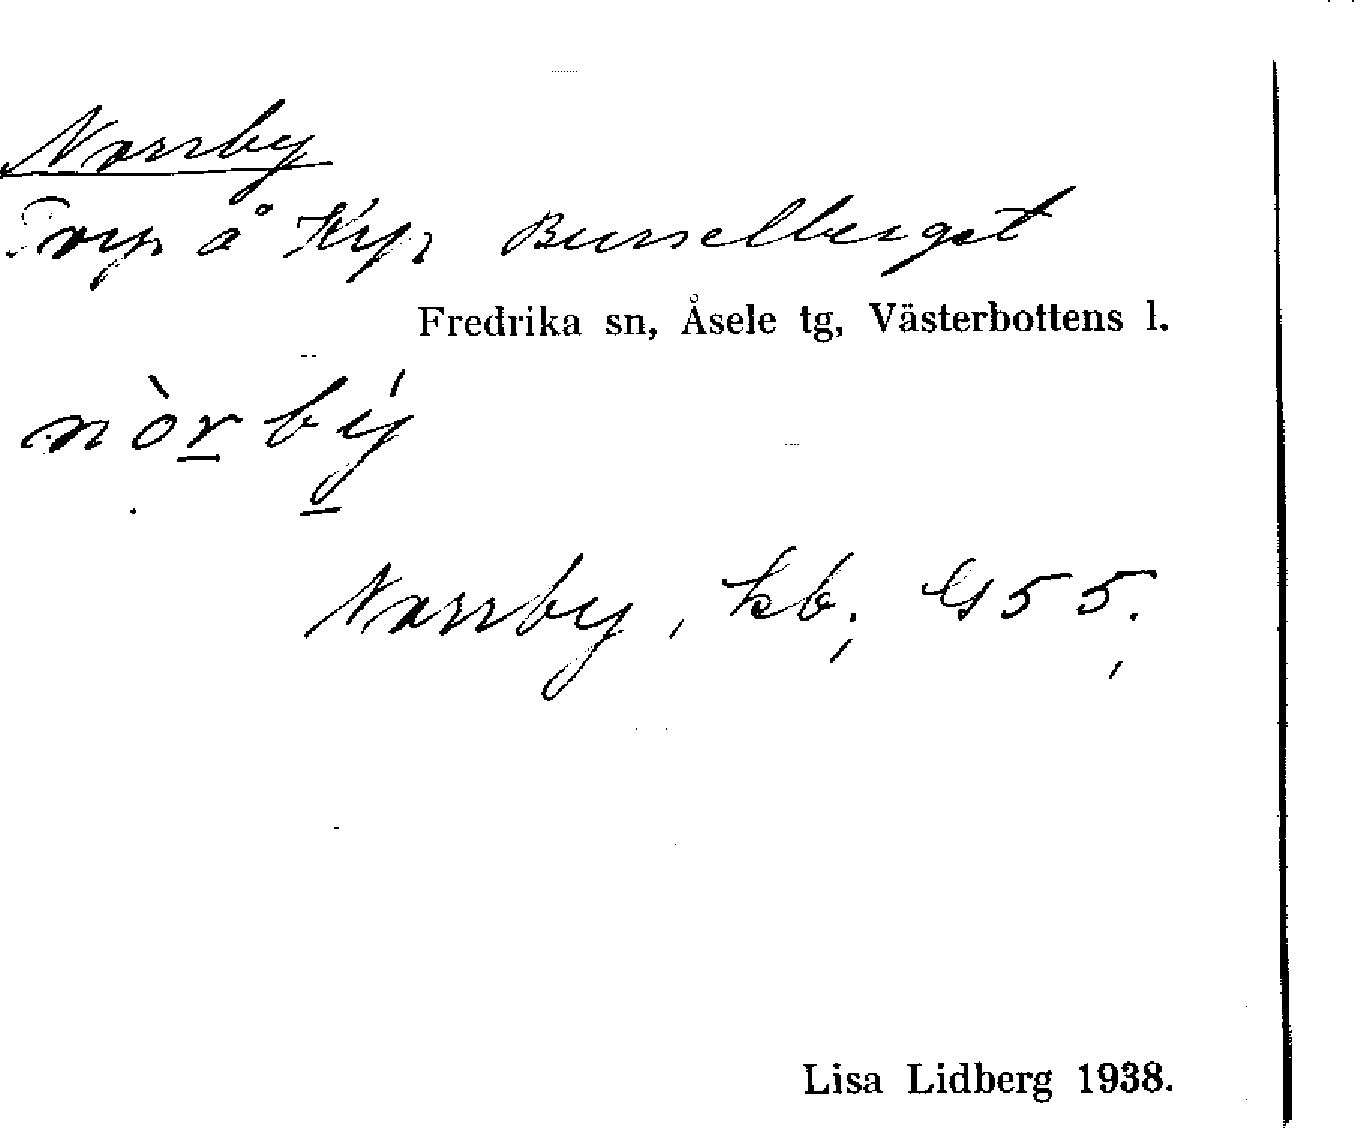 Norrby
Torp å Krp, Busselberget
Fredrika sn, Åsele tg, Västerbottens l.
nòrbý
Norrby, kb, G55.
Lisa Lidberg 1938.